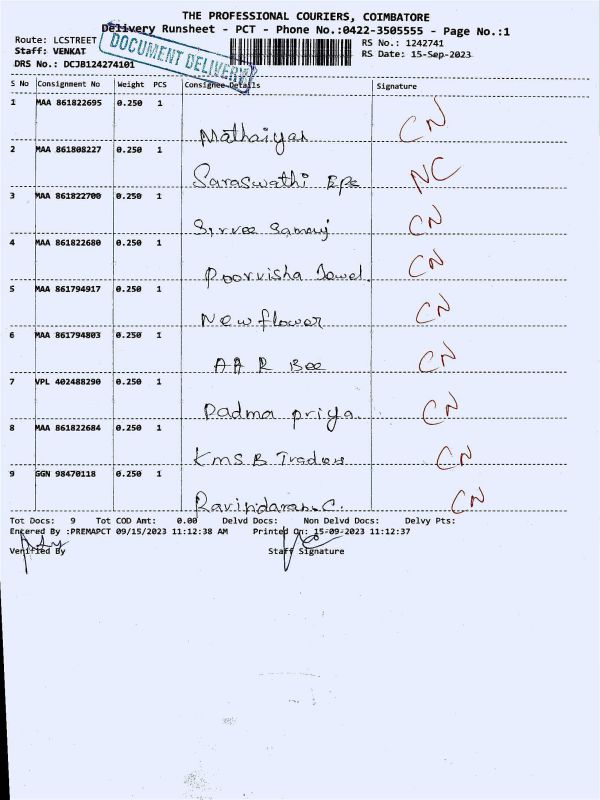 THE PROFESSIONAL COURIERS, COIMBATORE
Delivery Runsheet - PCT - Phone No.:0422-3505555 - Page No.:1
Route: LCSTREET
RS No.: 1242741
Staff: VENKAT
RS Date: 15-Sep-2023
DRS No.: DCJB124274101
DOCUMENT DELIVERY
S No Consignment No Weight PCS Consignee Details Signature
1 MAA 861822695 0.250 1
Mathaiyas CN
2 MAA 861808227 0.250 1
Saraswathi Epc NC
3 MAA 861822700 0.250 1
Sirvee Samaj CN
4 MAA 861822680 0.250 1
Poorvisha Jowel. CN
5 MAA 861794917 0.250 1
New flower CN
6 MAA 861794803 0.250 1
AA R Bee CN
7 VPL 402488290 0.250 1
Padma priya. CN
8 MAA 861822684 0.250 1
KMS B Traders CN
9 GGN 98470118 0.250 1
Ravindaran.C. CN
Tot Docs: 9 Tot COD Amt: 0.00 Delvd Docs: Non Delvd Docs: Delvy Pts:
Entered By :PREMAPCT 09/15/2023 11:12:38 AM Printed On: 15-09-2023 11:12:37
Verified By Staff Signature